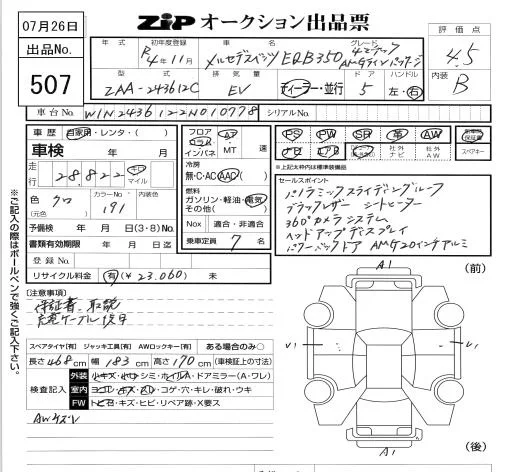 07月26日
ZIP オークション出品票
出品No.
507
評価点
4.5
内装
B
年式 初年度登録 車名 グレード
R4年11月 メルセデスベンツ EQB350 4マチック AMGラインパッケージ
型式 排気量 ドア ハンドル
ZAA-243612C EV ディーラー・並行 5 左・右
車台No. W1N2436122N010778 シリアルNo.
車歴 自家用・レンタ・( )
車検 年 月
走行 28,822 キロ マイル
色 クロ (元色) カラーNo. 191
予備検 年 月 日(3・8)No.
書類有効期限 年 月 日迄
登録No.
リサイクル料金 有(¥23,060) 未
フロア コラム インパネ AT MT 速
冷房 無・C・AC・AAC
燃料 ガソリン・軽油・電気 その他( )
Nox 適合・非適合
乗車定員 7 名
PS PW SR 革 AW 新車時保証書
ナビ エアB 社外ナビ 社外AW スペアキー
※上記太枠内は標準装備品
セールスポイント
パノラミックスライディングルーフ
ブラックレザー シートヒーター
360°カメラシステム
ヘッドアップディスプレイ
パワーバックドア AMG20インチアルミ
[注意事項]
保証書、取説
充電ケーブル後日
スペアタイヤ[有] ジャッキ工具[有] AWロックキー[有] ある場合のみ○
長さ 468 cm 幅 183 cm 高さ 170 cm (車検証上の寸法)
検査記入
外装 小キズ・小ウ・シミ・ホイルA・ドアミラー(A・ワレ)
室内 ヨゴレ・キズ・スレ・コゲ・穴・キレ・破れ・ウキ
FW トビ石・キズ・ヒビ・リペア跡・X要ス
AWケズレ
(前)
A1
V1
V1
A1
(後)
※ご記入の際はボールペンで強くご記入下さい。